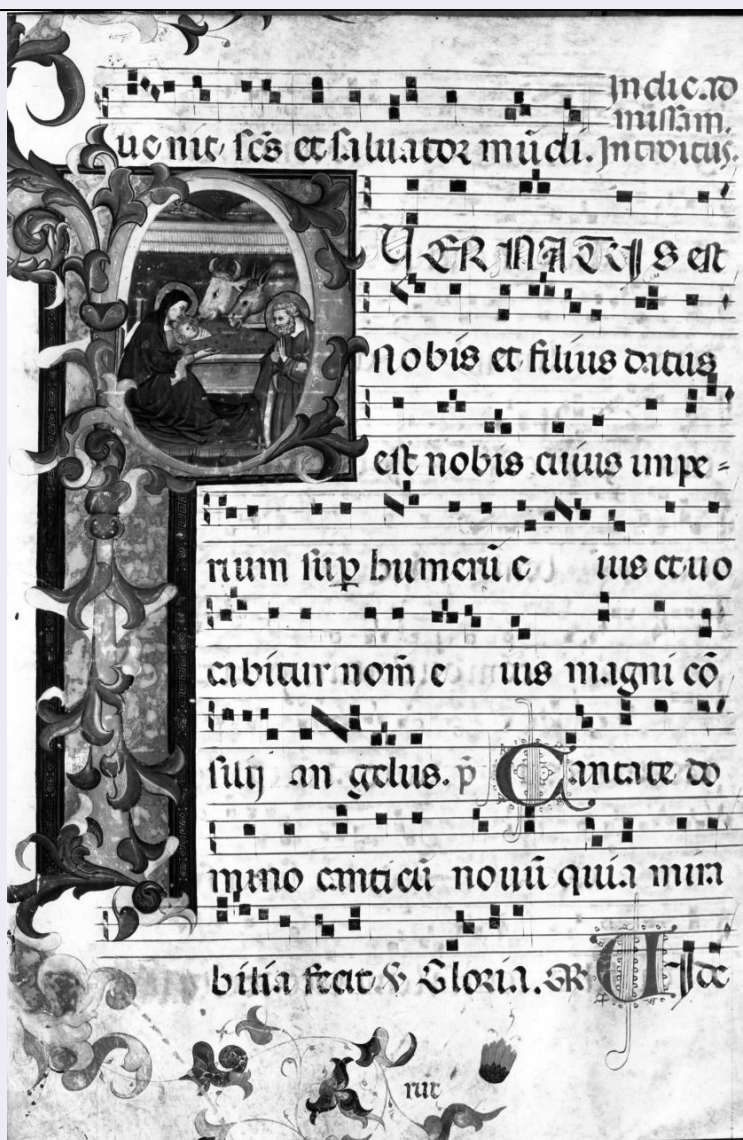 In die ad
missam.
uenit. scs et saluator mūdi. Introitus.
PUER NATUS est
nobis et filius datus
est nobis cuius impe-
rium sup humerū e ius et uo
cabitur nom̄ e ius magni cō
silij an gelus. p̄ Cantate do
mino canticū nouū quia mira
bilia fecit. Gloria. GR Uide
rūt